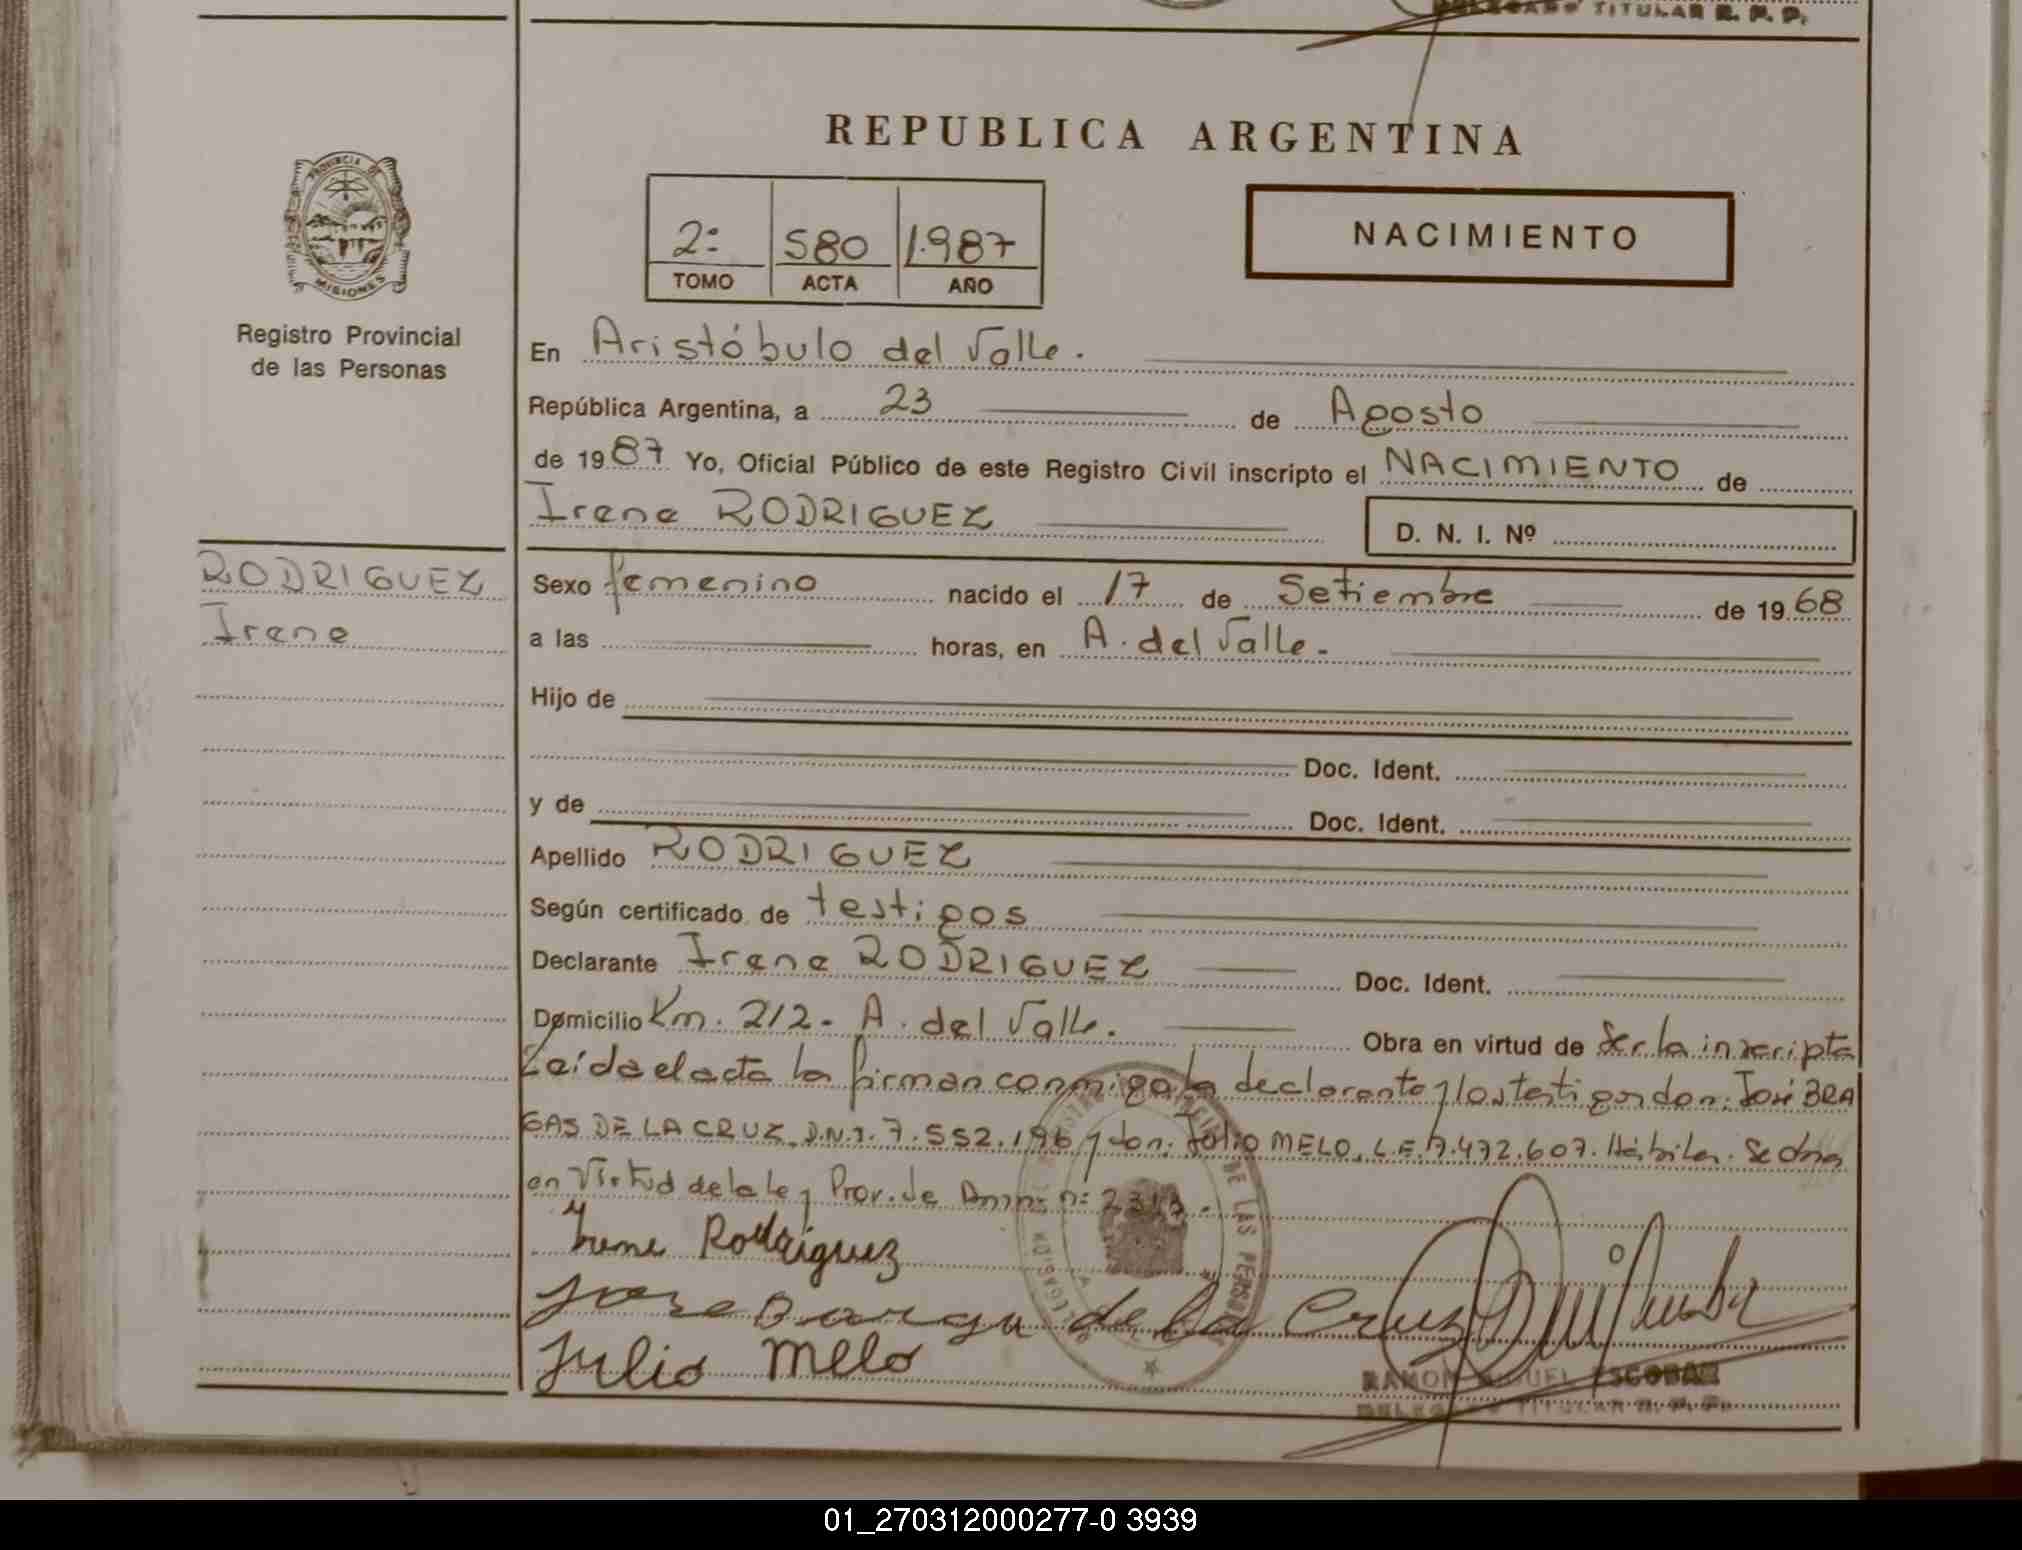 DELEGADO TITULAR R. P. P.
REPUBLICA ARGENTINA
PROVINCIA DE
MISIONES
2º 580 1.987
TOMO ACTA AÑO
NACIMIENTO
Registro Provincial
de las Personas
En Aristóbulo del Valle.
República Argentina, a 23 de Agosto
de 1987 Yo, Oficial Público de este Registro Civil inscripto el NACIMIENTO de
Irene RODRIGUEZ D. N. I. Nº
RODRIGUEZ
Irene
Sexo femenino nacido el 17 de Setiembre de 1968
a las horas, en A. del Valle.
Hijo de
Doc. Ident.
y de Doc. Ident.
Apellido RODRIGUEZ
Según certificado de testigos
Declarante Irene RODRIGUEZ Doc. Ident.
Domicilio Km. 212- A. del Valle. Obra en virtud de Ser la inscripta
Leída el acta la firman conmigo la declarante y los testigos don: José BRA
GAS DE LA CRUZ, D.N.I. 7.552.196 y don: Julio MELO, L.E. 7.472.607. Hábiles. Se
en Virtud de la Ley Prov. de Amn:
Irene Rodriguez
Jose de la Cruz
Julio Melo
DE LAS PERSONAS
RAMON MIGUEL ESCOBAR
DELEGADO TITULAR R. P. P.
01_270312000277-0 3939